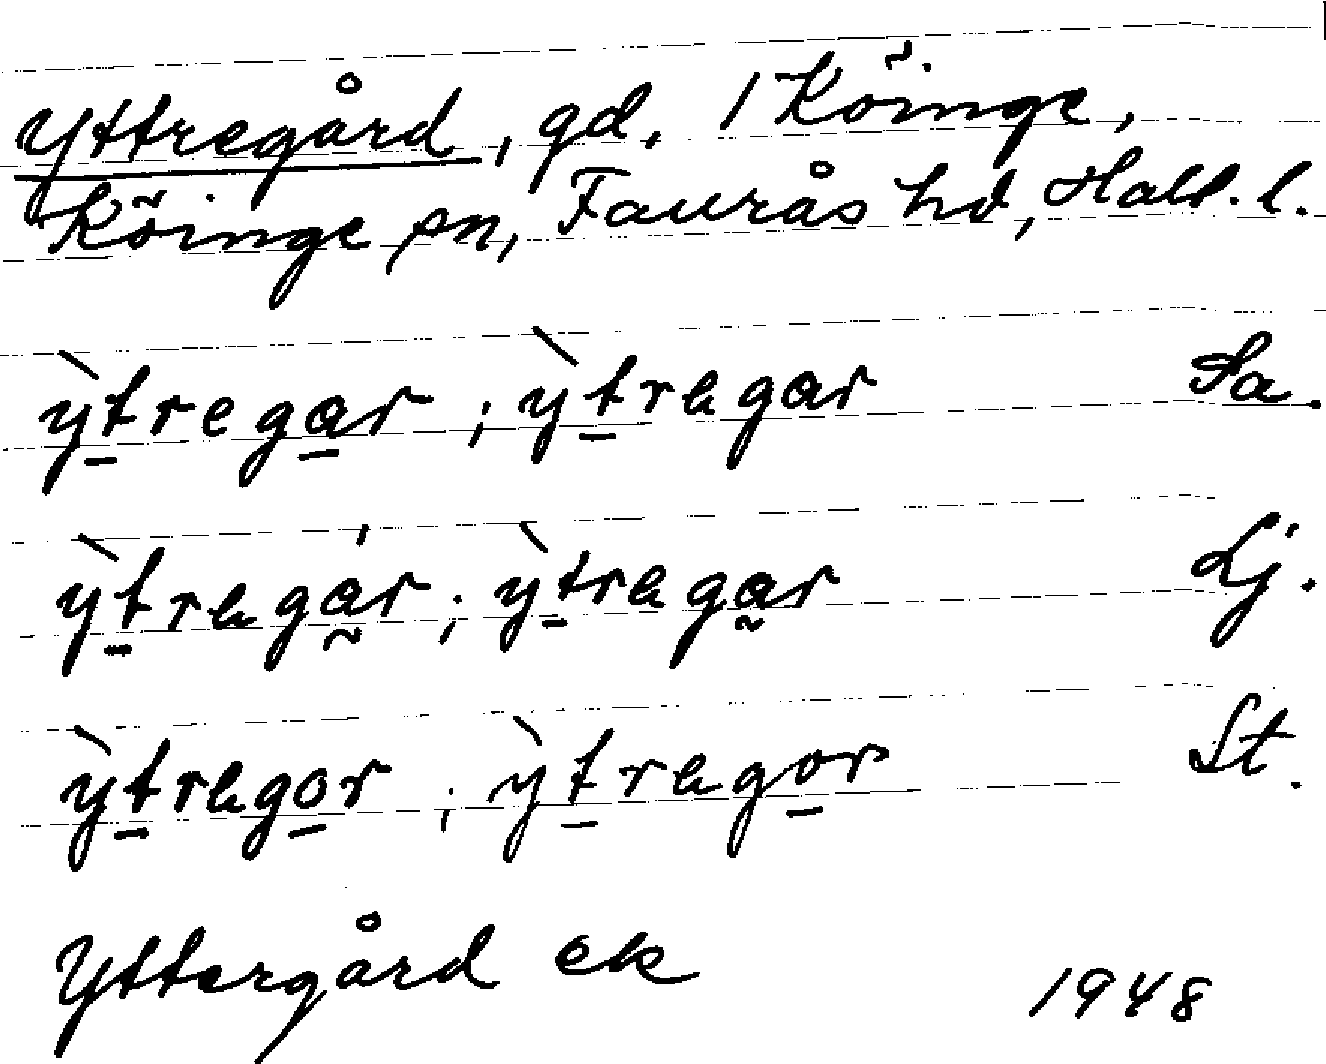 Yttregård, gd. 1 Köinge,
Köinge sn, Faurås hd, Hall. l.
ỳt̲rega̲r ; ỳt̲regar Sa.
ỳt̲rega̰r ; ỳt̲rega̰r Lj.
ỳt̲rego̲r ; ỳt̲rego̲r St.
Yttergård ek 1948